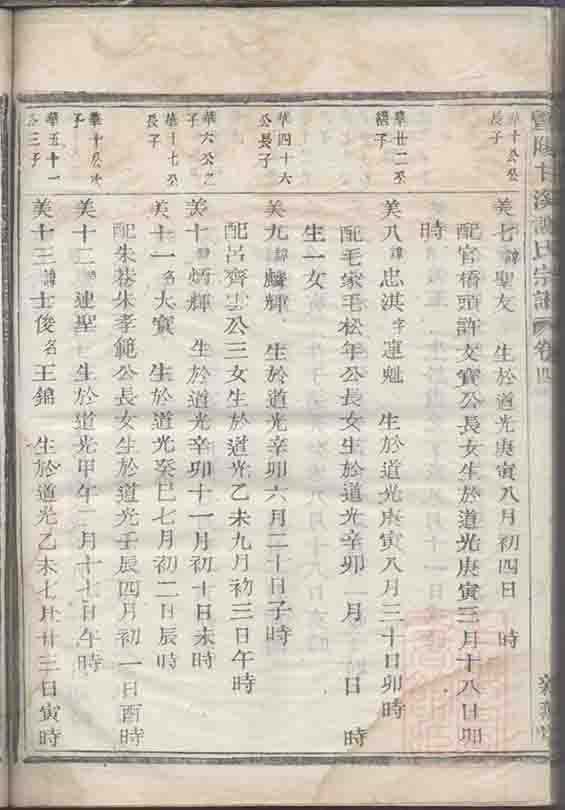 氏宗譜 卷四
華十公
長子
美七 諱聖友 生於道光庚寅八月初四日 時
配官橋頭許文寶公長女生於道光庚寅三月十八日卯
時
華廿二公
美八 諱忠淇 字運魁 生於道光庚寅八月三十日卯時
配毛家毛松年公長女生於道光辛卯 月 日 時
生一女
華四十六
公長子
美九 諱麟輝 生於道光辛卯六月二十日子時
配呂齊雲公三女生於道光乙未九月初三日午時
華六公之
子
美十 諱炳輝 生於道光辛卯十一月初十日未時
華十七公
長子
美十一 名大寶 生於道光癸巳七月初二日辰時
配朱巷朱孝範公長女生於道光壬辰四月初一日酉時
華十公次
子
美十二 諱連聖 生於道光甲午二月十七日午時
華五十一
公三子
美十三 諱士俊 名王錦 生於道光乙未七月廿三日寅時